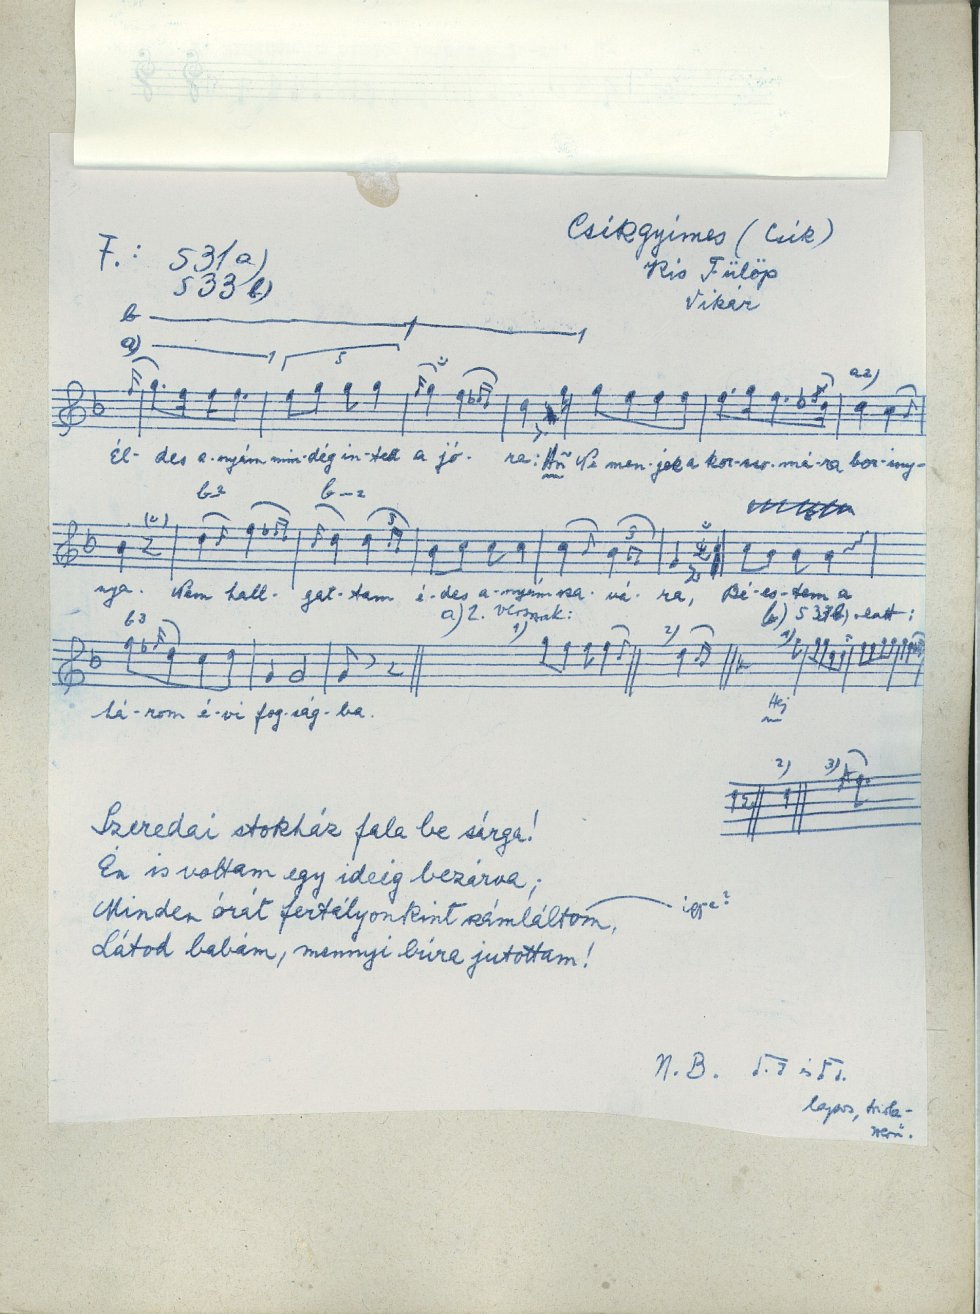 F.: 531a)
533b)
Csíkgyimes (Csík)
Kis Fülöp
Vikár
b
a)
5
a2)
Él- des a-nyám min-dég in-ted a jó- ra: Ne men-jek a kor-cso-má-ra bor-iny-
b2 b-2
nya. Nem hall- gat-tam é-des a-nyám sza- vá- ra, Bé-es-tem a
b3 a) 2. versnek: b) 533b) alatt:
1) 2) 1)
Hej
há-rom é-vi fog-ság-ba.
2) 3)
Szeredai stokház fala be sárga!
Én is voltam egy ideig bezárva;
Minden órát fertályonkint számláltom, így-e?
Látod babám, mennyi búra jutottam!
N.B. és
lapos, triola-
szerű.